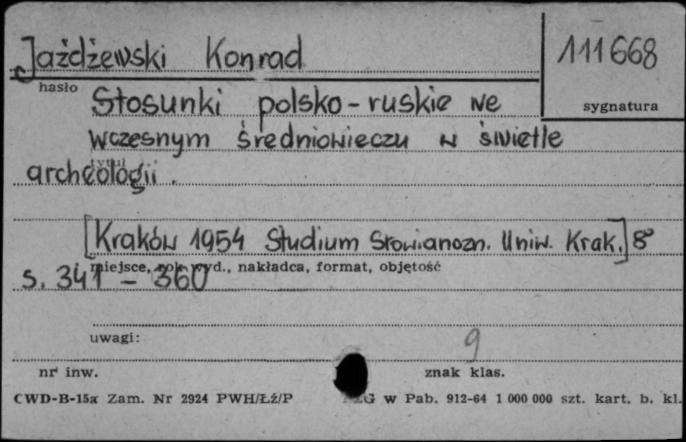 Jażdżewski Konrad
111668
hasło
sygnatura
Stosunki polsko-ruskie we
wczesnym średniowieczu w świetle
tytuł
archeologii.
[Kraków 1954 Studium Słowianozn. Uniw. Krak.] 8°
miejsce, rok wyd., nakładca, format, objętość
s. 341 - 360
uwagi:
9
nr inw.
znak klas.
CWD-B-15a Zam. Nr 2924 PWH/Łź/P
w Pab. 912-64 1 000 000 szt. kart. b. kl.